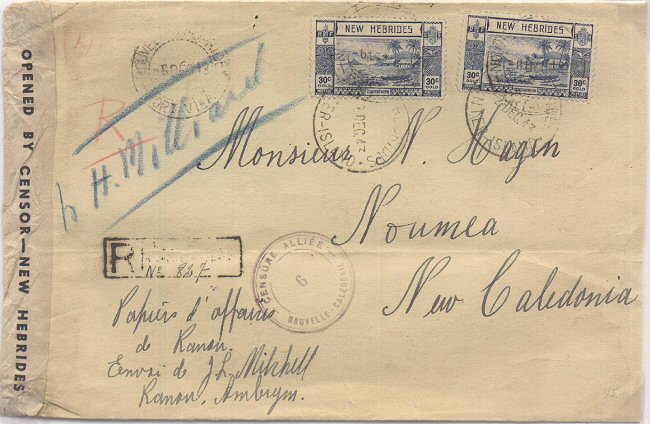 OPENED BY CENSOR—NEW HEBRIDES
NEW HEBRIDES
RF
30c
GOLD
30c
GOLD
NEW HEBRIDES
RF
30c
GOLD
30c
GOLD
PORT VILA
DEC 43
R
H. Milliard
Monsieur N. Hagen
Noumea
New Caledonia
R
No 827
CENSURE ALLIÉE
6
NOUVELLE-CALEDONIE
Papiers d'affaires
de Ranon.
Envoi de J. L. Mitchell
Ranon, Ambrym.